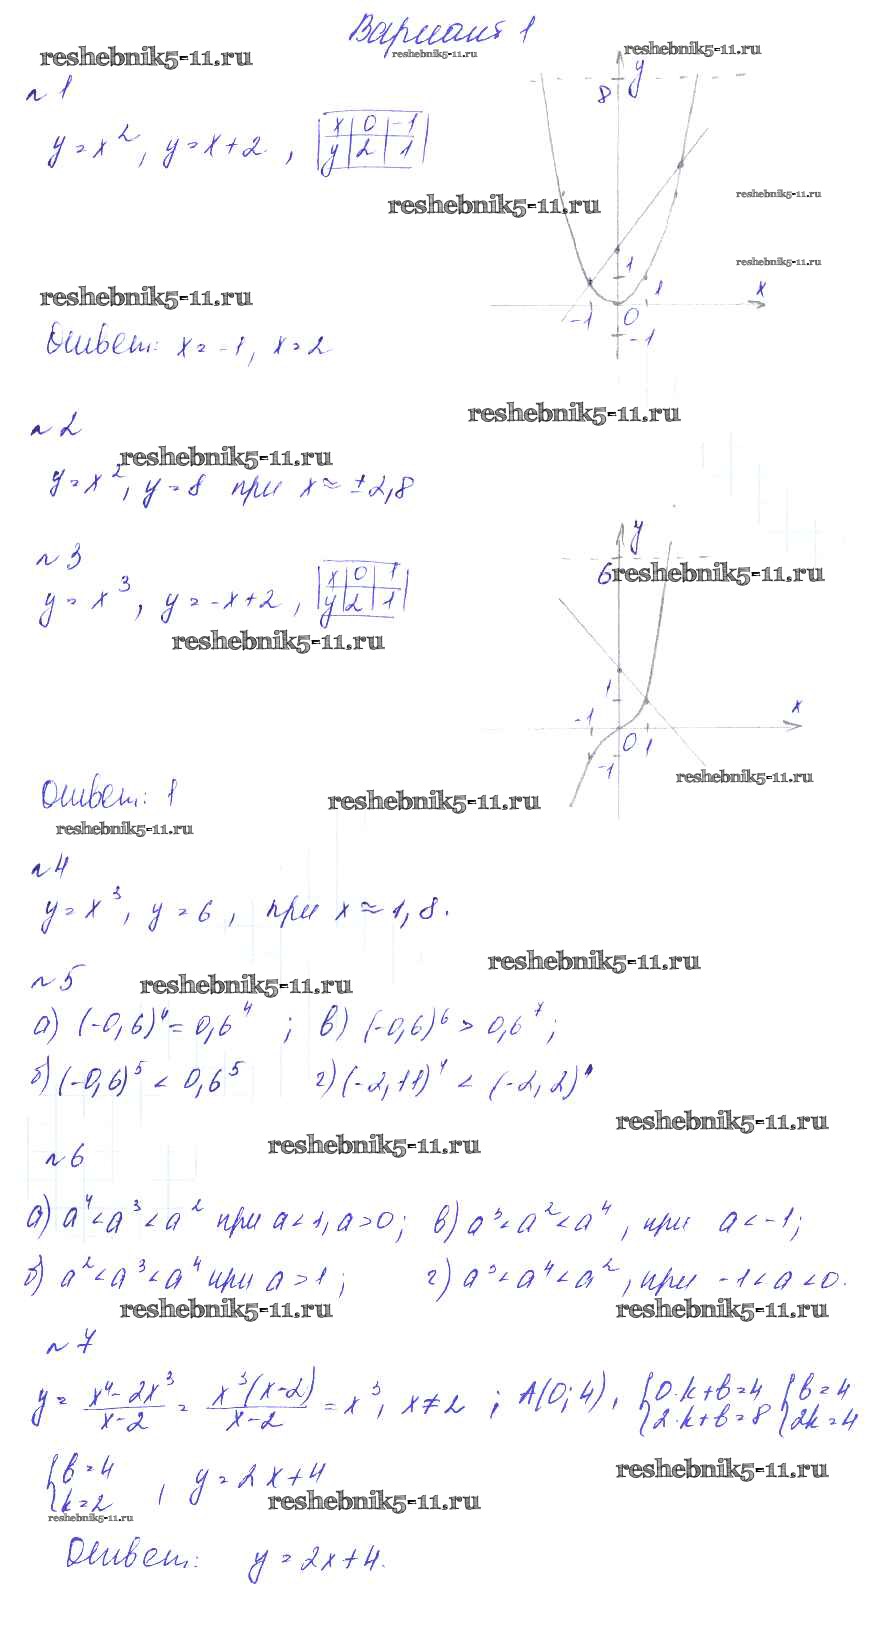 Вариант 1
reshebnik5-11.ru reshebnik5-11.ru reshebnik5-11.ru
№1
y = x², y = x + 2, | x | 0 | -1 |
| y | 2 | 1 |
y
8
1
1
x
-1
0
-1
reshebnik5-11.ru reshebnik5-11.ru
reshebnik5-11.ru
reshebnik5-11.ru
Ответ: x = -1, x = 2
reshebnik5-11.ru
№2
reshebnik5-11.ru
y = x², y = 8 при x ≈ ±2,8
№3
y = x³, y = -x + 2, | x | 0 | 1 |
| y | 2 | 1 |
y
6
reshebnik5-11.ru
reshebnik5-11.ru
1
-1
x
0
1
-1
reshebnik5-11.ru
Ответ: 1
reshebnik5-11.ru
reshebnik5-11.ru
№4
y = x³, y = 6, при x ≈ 1,8.
reshebnik5-11.ru
№5
reshebnik5-11.ru
а) (-0,6)⁴ = 0,6⁴; в) (-0,6)⁶ > 0,6⁷;
б) (-0,6)⁵ < 0,6⁵ г) (-2,11)⁴ < (-2,2)
reshebnik5-11.ru
reshebnik5-11.ru
№6
а) a⁴ < a³ < a² при a < 1, a > 0; в) a³ < a² < a⁴, при a < -1;
б) a² < a³ < a⁴ при a > 1; г) a³ < a⁴ < a², при -1 < a < 0.
reshebnik5-11.ru reshebnik5-11.ru
№7
y = (x⁴ - 2x³)/(x - 2) = x³(x - 2)/(x - 2) = x³, x ≠ 2; A(0; 4), {0·k + b = 4 {b = 4
{2·k + b = 8 {2k = 4
{b = 4
{k = 2, y = 2x + 4
reshebnik5-11.ru
reshebnik5-11.ru
reshebnik5-11.ru
Ответ: y = 2x + 4.